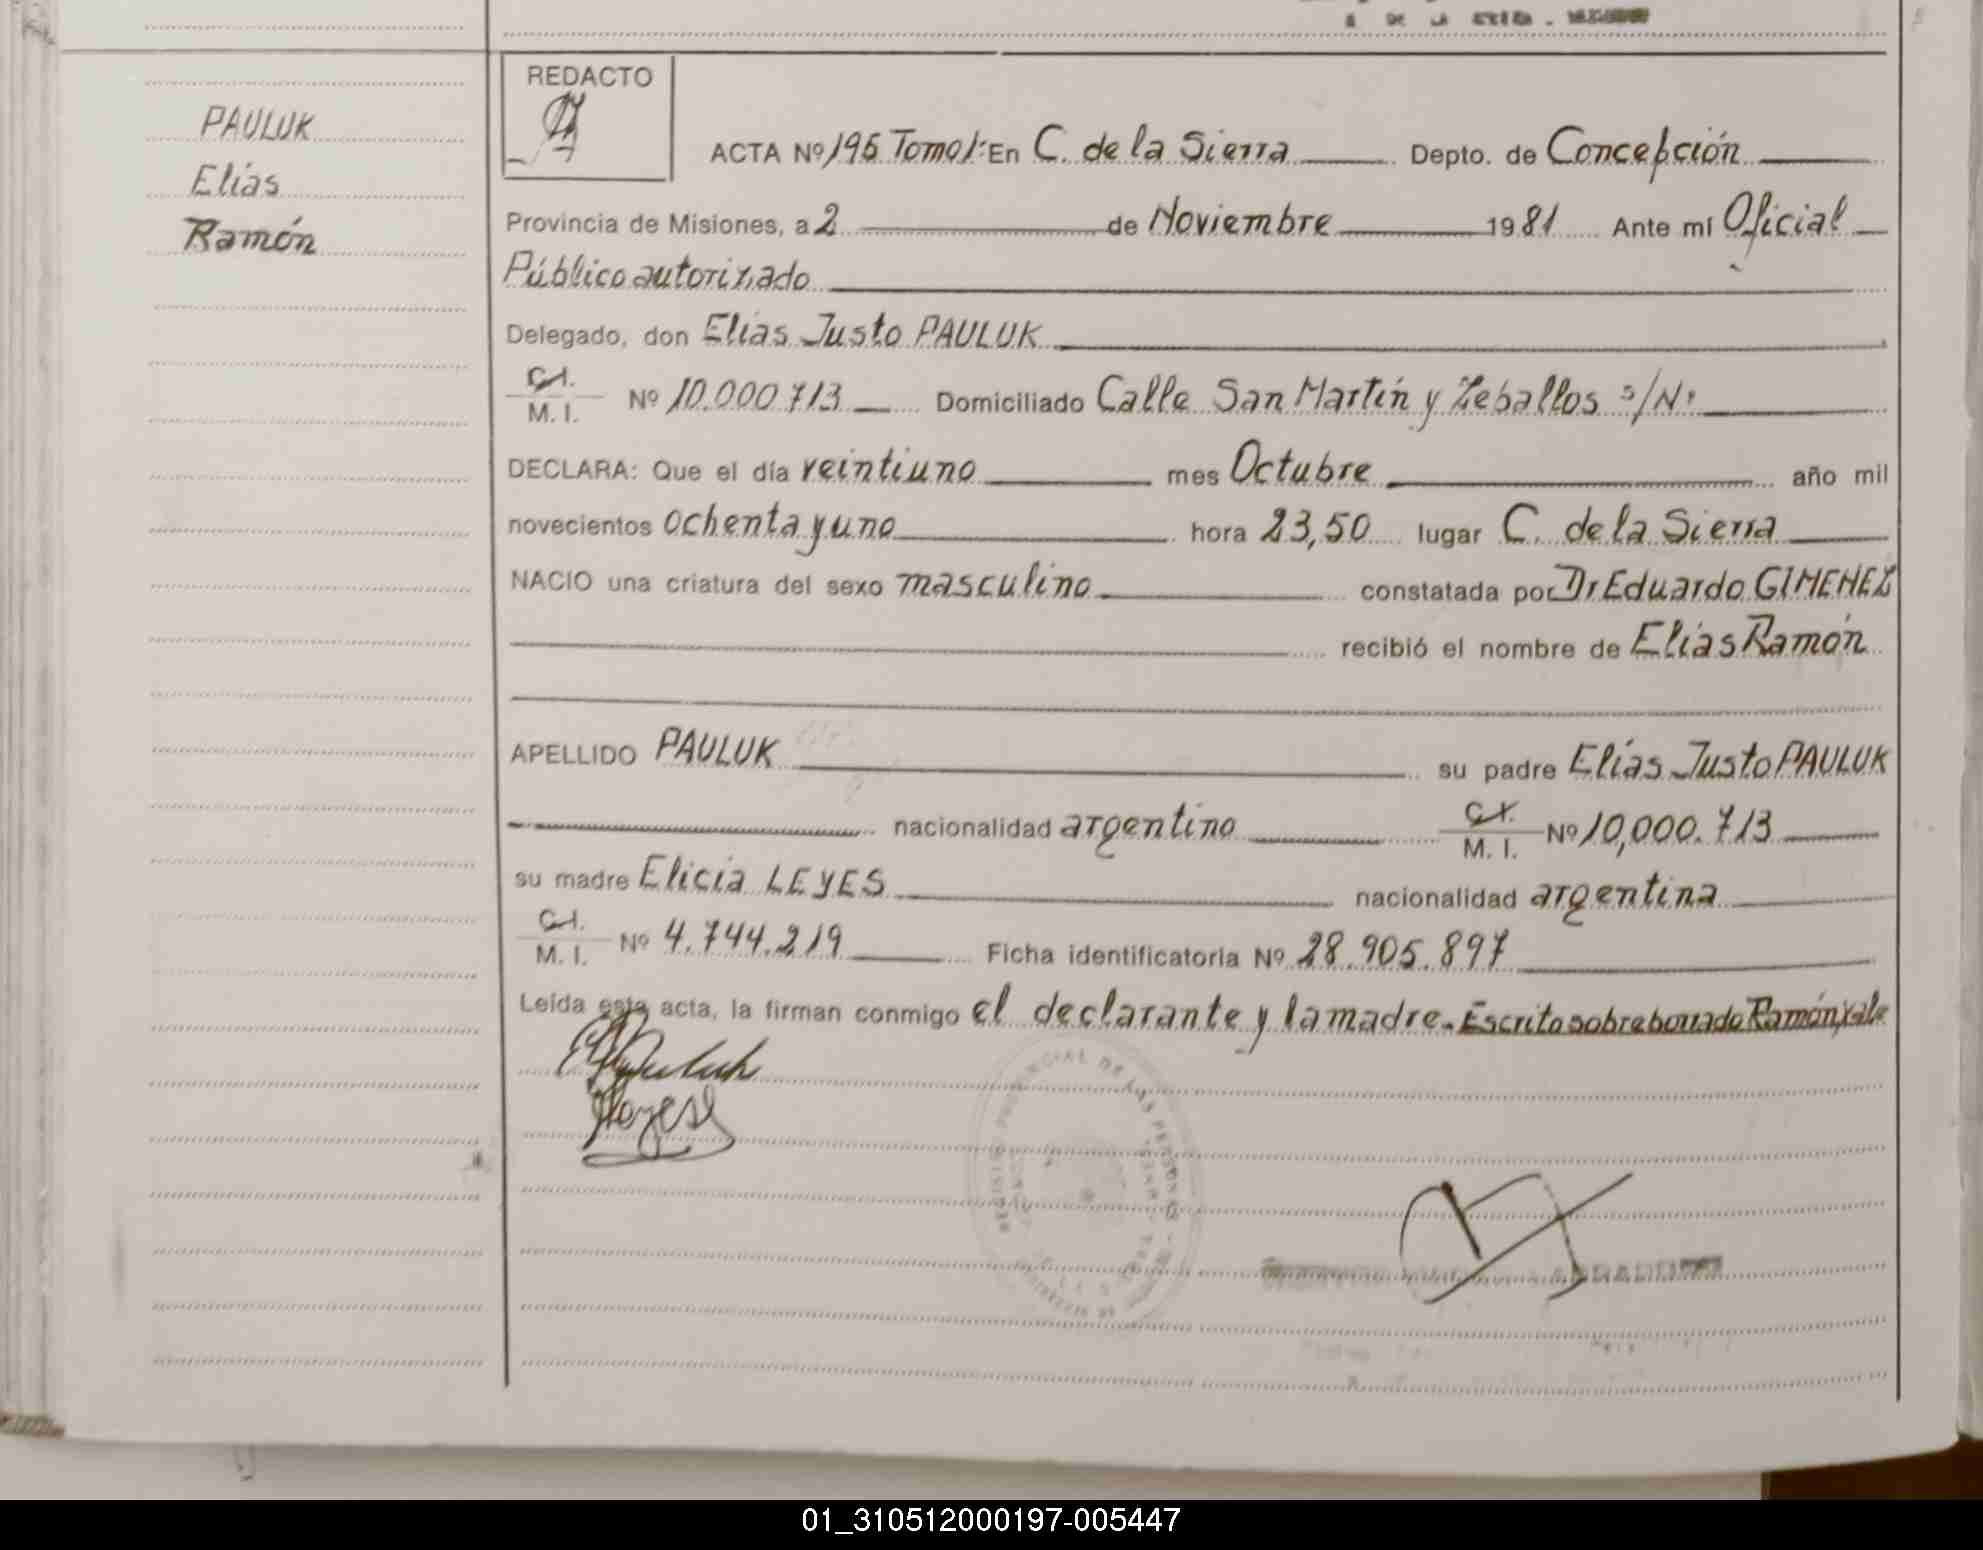 PAULUK
Elías
Ramón
REDACTO
ACTA Nº 195 Tomo I: En C. de la Sierra Depto. de Concepción
Provincia de Misiones, a 2 de Noviembre 1981 Ante mí Oficial
Público autorizado
Delegado, don Elías Justo PAULUK
C.I.
M. I. Nº 10.000.713 Domiciliado Calle San Martín y Zeballos s/Nº
DECLARA: Que el día veintiuno mes Octubre año mil
novecientos ochenta y uno hora 23,50 lugar C. de la Sierra
NACIO una criatura del sexo masculino constatada por Dr Eduardo GIMENEZ
recibió el nombre de Elías Ramón
APELLIDO PAULUK su padre Elías Justo PAULUK
nacionalidad argentino C.I.
M. I. Nº 10,000.713
su madre Elicia LEYES nacionalidad argentina
C.I.
M. I. Nº 4.744.219 Ficha identificatoria Nº 28.905.897
Leída esta acta, la firman conmigo el declarante y la madre. Escrito sobre borrado Ramón, vale
REGISTRO PROVINCIAL DE LAS PERSONAS
01_310512000197-005447